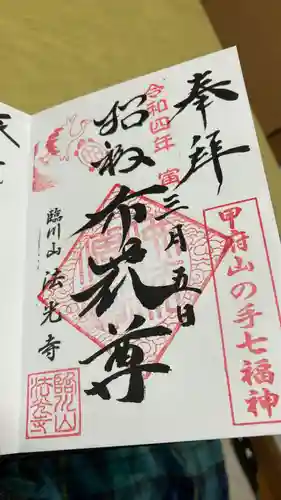 奉拝
令和四年 寅
三月五日
招福布袋尊
臨川山 法光寺
甲府山の手七福神
臨川山
法光寺